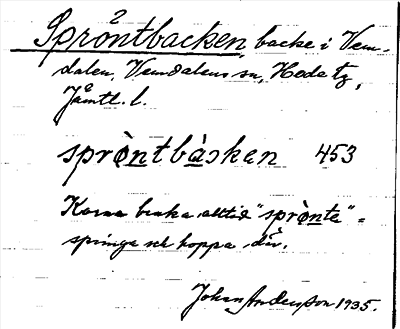 Spröntbacken, backe i Vem-
dalen, Vemdalens sn, Hede tg,
Jämtl. l.
spròntbàsken 453
Korna bruka alltid "sprònta" =
springa och hoppa där.
Johan Anderson 1935.